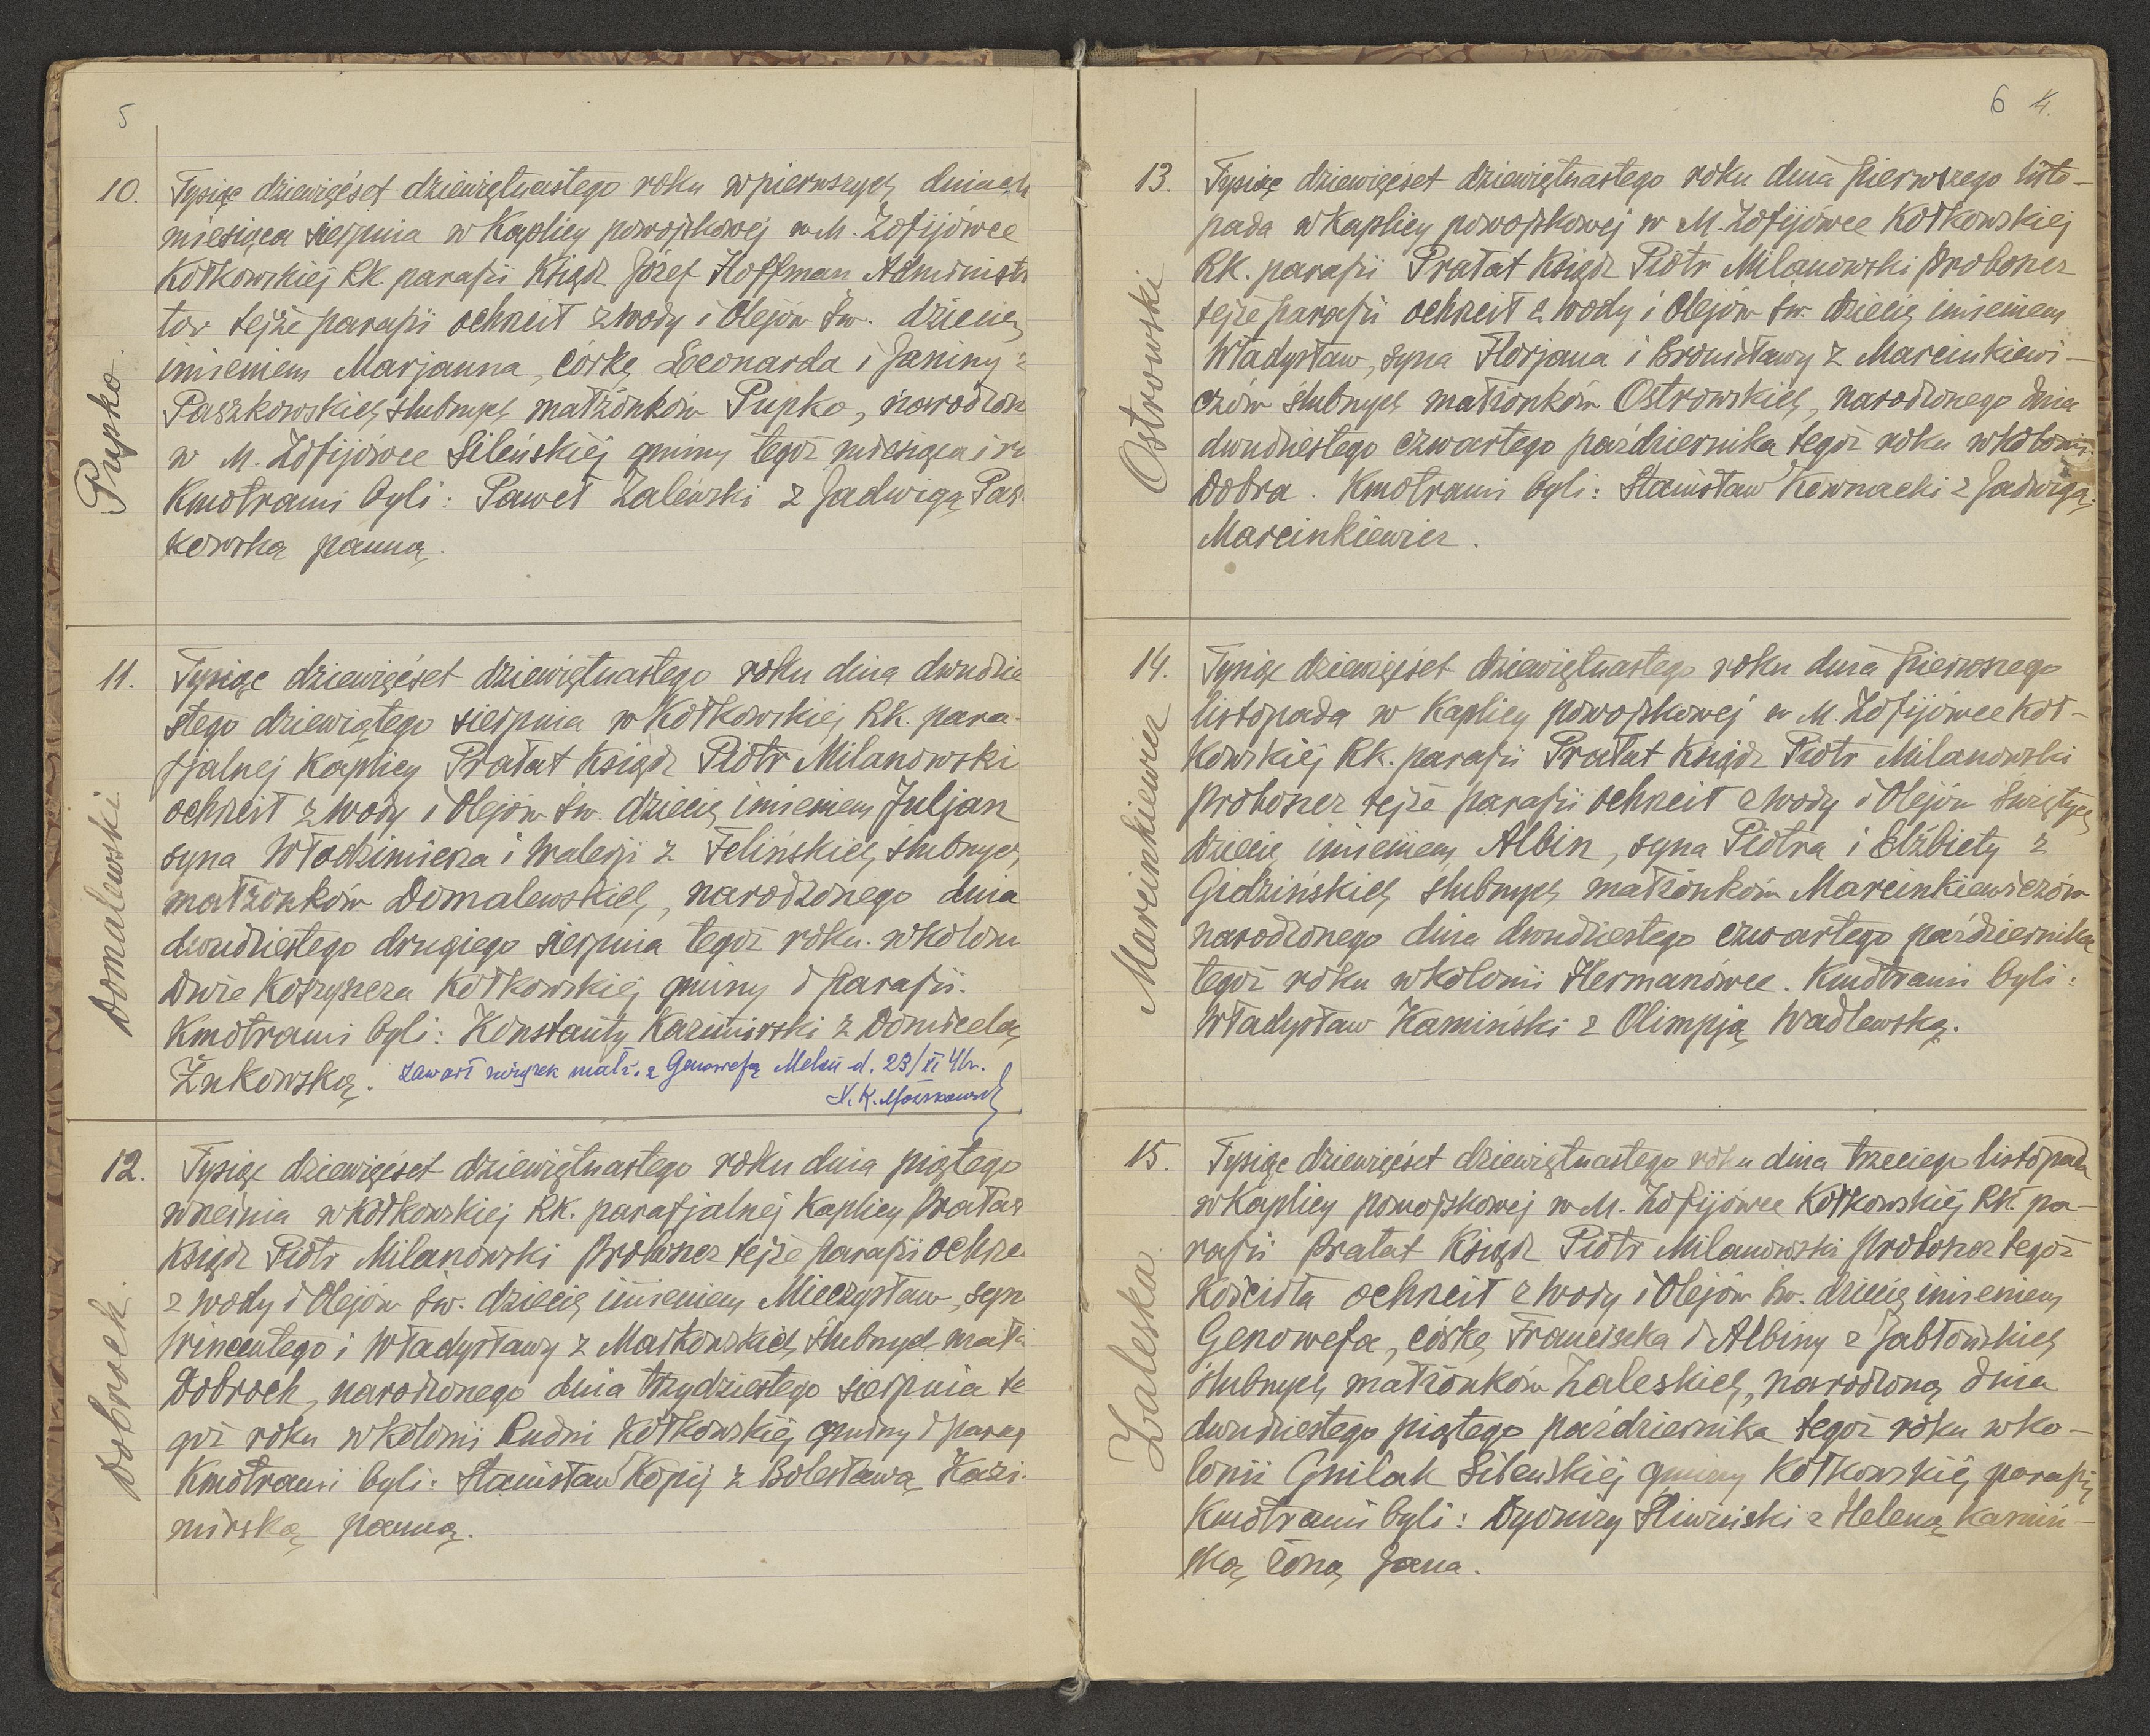 5
10.
Pupko.
Tysiąc dziewięćset dziewiętnastego roku w pierwszych dniach
miesiąca sierpnia w Kaplicy powojskowej w M. Zofijówce
Kołkowskiej RK. parafii Ksiądz Józef Hoffman Administr
tor tejże parafii ochrzcił z wody i Olejów św. dziecię
imieniem Marjanna, córkę Leonarda i Janiny z
Paszkowskich ślubnych małżonków Pupko, narodzon
w M. Zofijówce Sileńskiej gminy tegoż miesiąca i ro
Kmotrami byli: Paweł Zalewski z Jadwigą Pas
kowską panną.
11.
Domalewski.
Tysiąc dziewięćset dziewiętnastego roku dnia dwudzie
stego dziewiątego sierpnia w Kołkowskiej RK. para-
fjalnej Kaplicy Prałat Ksiądz Piotr Milanowski
ochrzcił z wody i Olejów św. dziecię imieniem Juljan
syna Włodzimierza i Walerji z Felińskich ślubnych
małżonków Domalewskich, narodzonego dnia
dwudziestego drugiego sierpnia tegoż roku w kolon
Dwie Kołkowskiej gminy i parafii.
Kmotrami byli: Konstanty Kazimirski z Domicelą
Żukowską. zawarł związek małż. z Genowefą d. 23/XI 41r.
12.
Dobroch.
Tysiąc dziewięćset dziewiętnastego roku dnia piątego
września w Kołkowskiej RK. parafjalnej Kaplicy Prałat
Ksiądz Piotr Milanowski Proboszcz tejże parafii ochrz
z wody i Olejów św. dziecię imieniem Mieczysław, syn
Wincentego i Władysławy z Małkowskich ślubnych małż
Dobroch, narodzonego dnia trzydziestego sierpnia te
goż roku w kolonii Rudni Kołkowskiej gminy i paraf
Kmotrami byli: Stanisław Kopij z Bolesławą Kazi-
mirską panną.
6 4.
13.
Ostrowski
Tysiąc dziewięćset dziewiętnastego roku dnia pierwszego listo-
pada w Kaplicy powojskowej w M. Zofijówce Kołkowskiej
RK. parafii Prałat Ksiądz Piotr Milanowski Proboszcz
tejże parafii ochrzcił z wody i Olejów św. dziecię imieniem
Władysław, syna Florjana i Bronisławy z Marcinkiewi-
czów ślubnych małżonków Ostrowskich, narodzonego dnia
dwudziestego czwartego października tegoż roku w kolonii
Dobra. Kmotrami byli: Stanisław Kownacki z Jadwigą
Marcinkiewicz.
14.
Marcinkiewicz
Tysiąc dziewięćset dziewiętnastego roku dnia pierwszego
listopada w Kaplicy powojskowej w M. Zofijówce Koł-
kowskiej RK. parafii Prałat Ksiądz Piotr Milanowski
Proboszcz tejże parafii ochrzcił z wody i Olejów Świętych
dziecię imieniem Albin, syna Piotra i Elżbiety z
Gidzińskich ślubnych małżonków Marcinkiewiczów
narodzonego dnia dwudziestego czwartego października
tegoż roku w kolonii Hermanówce. Kmotrami byli:
Władysław Kamiński z Olimpją Wadlewską.
15.
Zaleska.
Tysiąc dziewięćset dziewiętnastego roku dnia trzeciego listopada
w Kaplicy powojskowej w M. Zofijówce Kołkowskiej RK. pa-
rafii Prałat Ksiądz Piotr Milanowski Proboszcz tegoż
Kościoła ochrzcił z wody i Olejów św. dziecię imieniem
Genowefa, córkę Franciszka i Albiny z Jabłońskich
ślubnych małżonków Zaleskich, narodzoną dnia
dwudziestego piątego października tegoż roku w ko-
lonii Gnilak Sileńskiej gminy Kołkowskiej parafii
Kmotrami byli: Dyonizy Śliwiński z Heleną Kamiń-
ską żoną Jana.